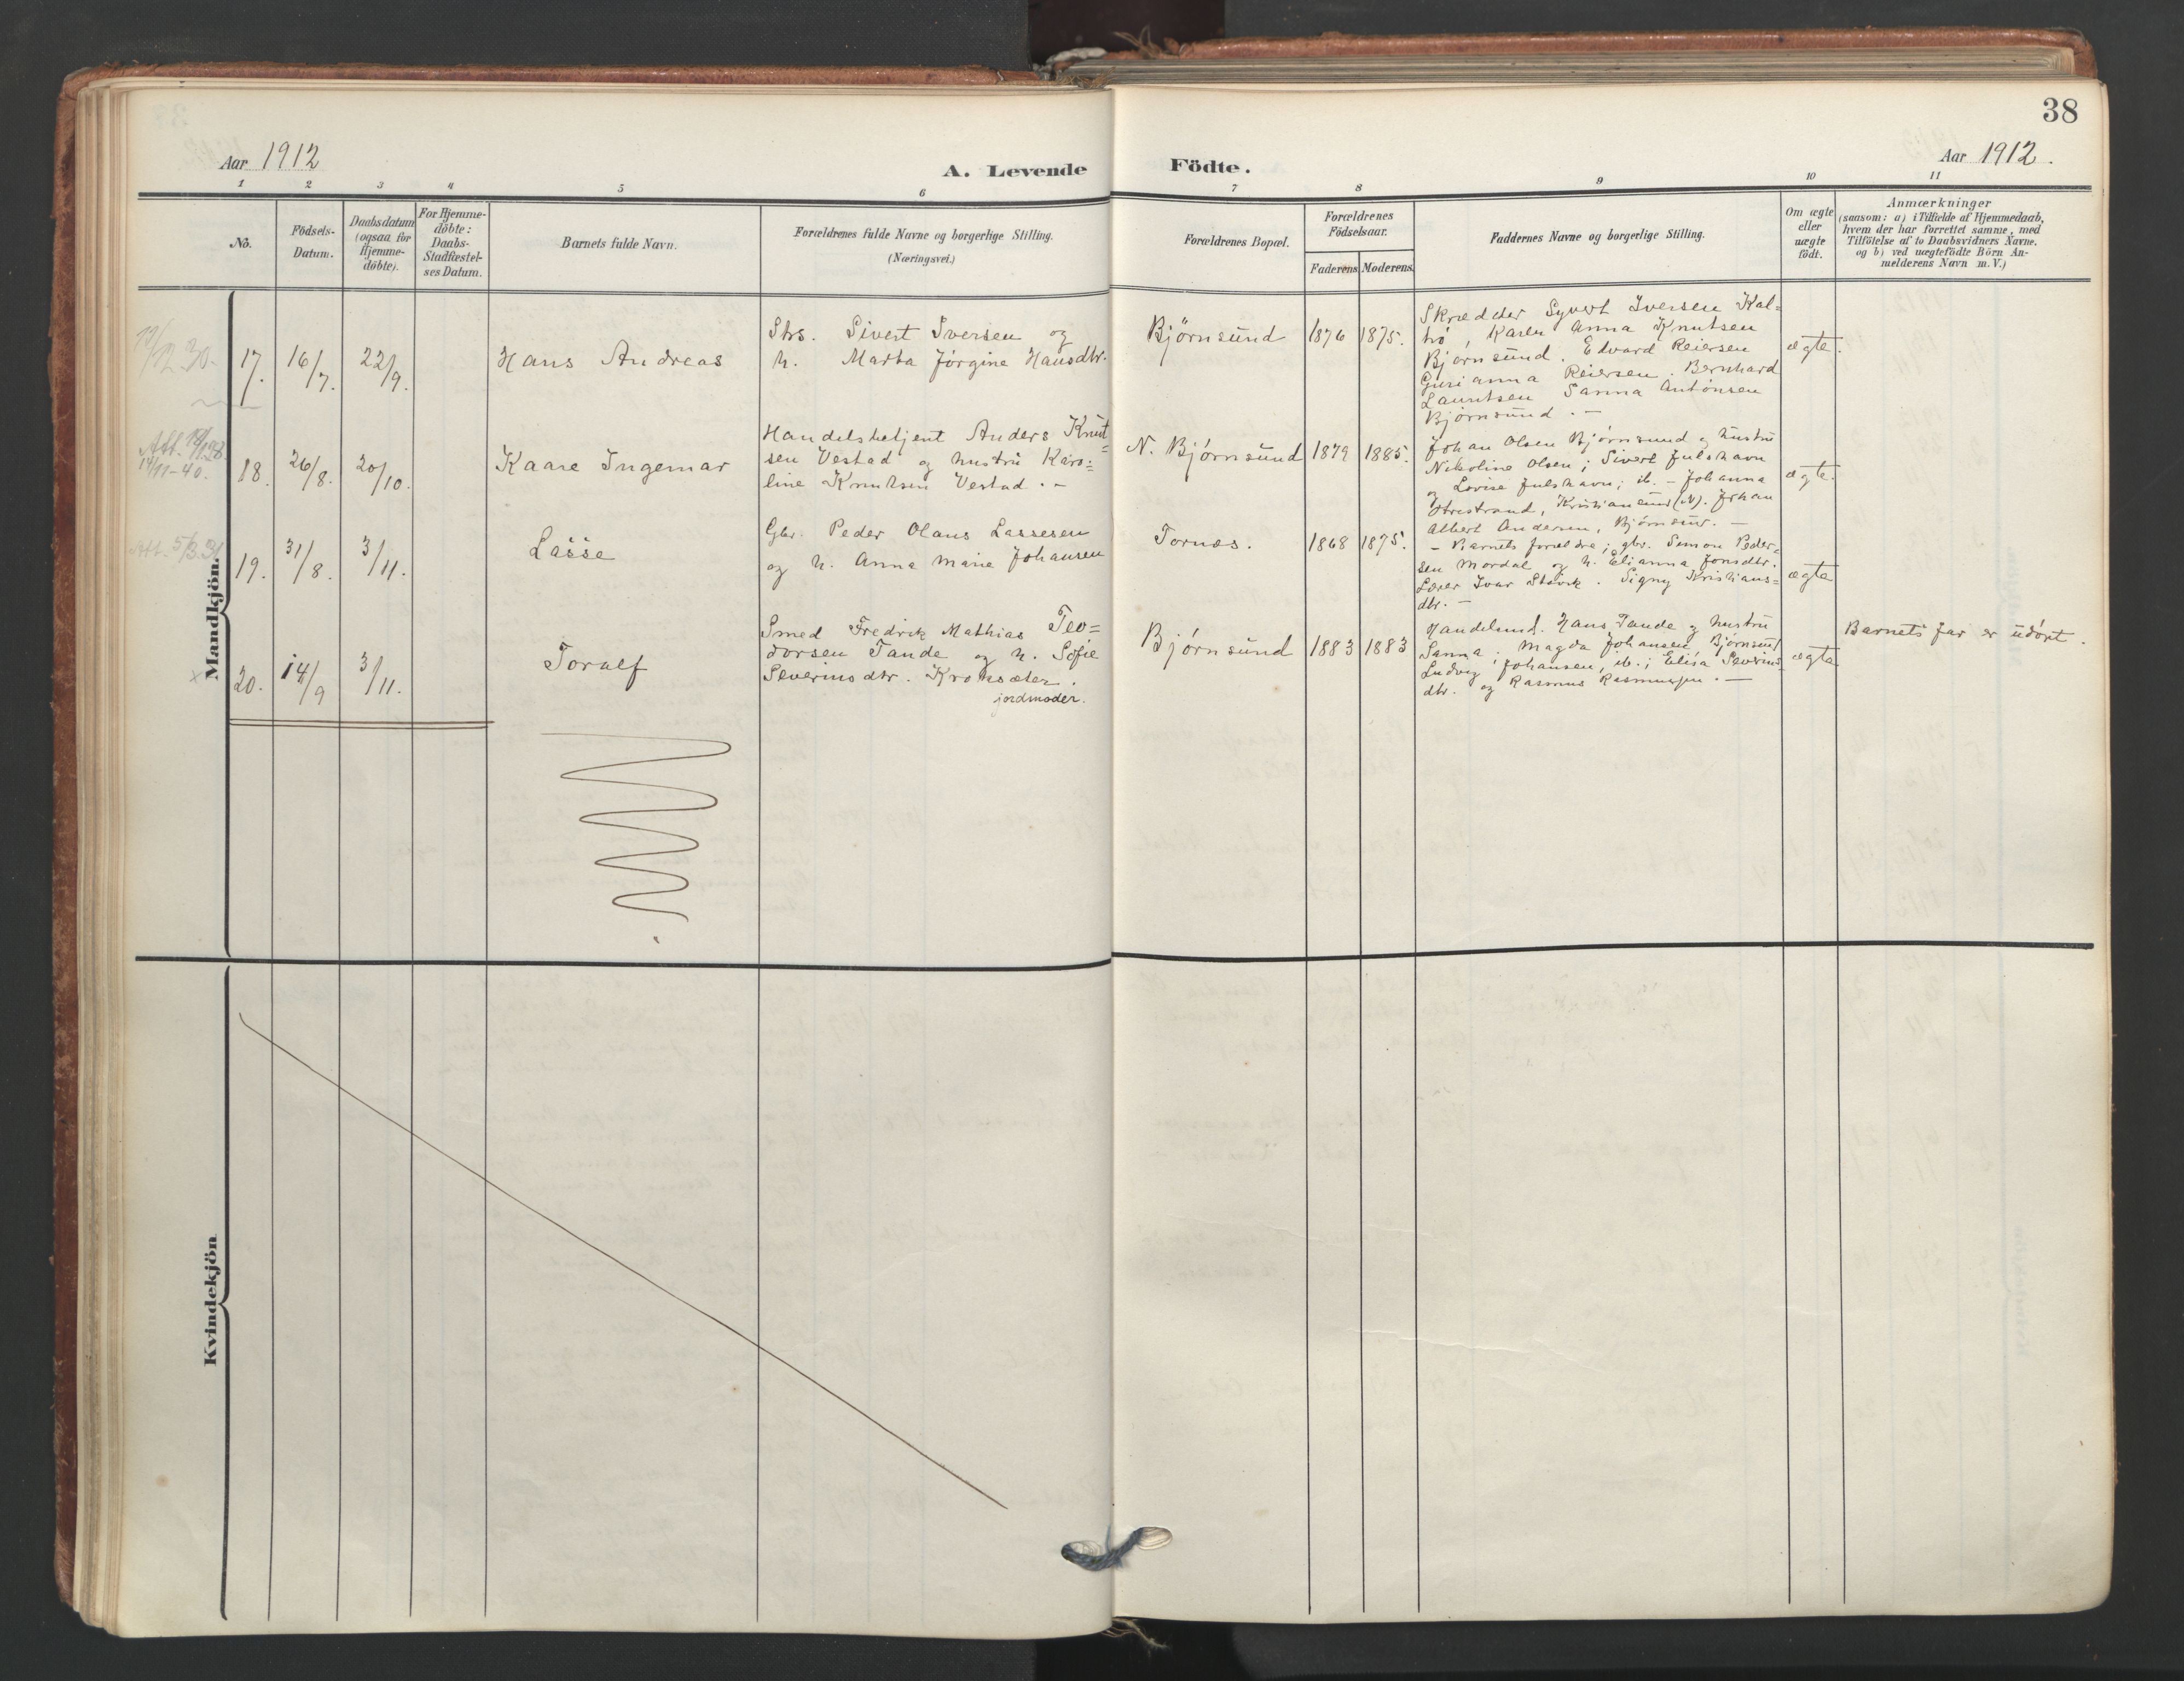 38
Aar 1912
A. Levende Födte.
Aar 1912.
1 2 3 4 5 6 7 8 9 10 11
No.
Födsels-
Datum.
Daabsdatum
(ogsaa for
Hjemme-
döbte).
For Hjemme-
döbte:
Daabs-
Stadfæstel-
ses Datum.
Barnets fulde Navn.
Forældrenes fulde Navne og borgerlige Stilling.
(Næringsvei.)
Forældrenes Bopæl.
Forældrenes
Födselsaar.
Faderens Moderens
Faddernes Navne og borgerlige Stilling.
Om ægte
eller
uægte
födt.
Anmærkninger
(saasom: a) i Tilfælde af Hjemmedaab,
hvem der har forrettet samme, med
Tilföielse af to Daabsvidners Navne.
og b) ved uægtefödte Börn An-
melderens Navn m. V.)
Mandkjön.
12.30.
17. 16/7. 22/9. Hans Andreas
Sivert Iversen og
h. Marta Jørgine Hansdtr.
Bjørnsund 1876 1875.
Skrædder Syvert Iversen Kal=
trö, Karen Anna Knutsen
Bjørnsund. Edvard Reiersen
Gurianna Reiersen. Bernhard
Lauritsen Sanna Antonsen
Bjørnsund. -
ægte.
Att.
14/11-40.
18. 26/8. 20/10. Kaare Ingemar
Handelsbetjent Anders Knut=
sen Vestad og hustru Karo=
line Knutsen Vestad. -
N. Bjørnsund 1879 1885.
Johan Olsen Bjørnsund og hustru
Nikoline Olsen; Sivert Julshavn
og Lovise Julshavn; ib. - Johanna
Kristiansund (N). Johan
Albert Andersen, Bjørnsund. -
ægte.
Att. 5/3.31
19. 31/8. 3/11. Lasse
Gbr. Peder Olaus Lassesen
og h. Anna Marie Johansen
Tornæs. 1868 1875.
- Barnets forældre; gbr. Simon Peder=
sen Mordal og h. Elianna Jonsdtr.
Lærer Ivar Stavik. Signy Kristians=
dtr. -
ægte
20. 14/9 3/11. Toralf
Smed Fredrik Mathias Teo=
dorsen Tande og h. Sofie
Severinsdtr. Kroksæter.
jordmoder.
Bjørnsund 1883 1883
Handelsmd. Hans Tande og hustru
Sanna. Magda Johansen Bjørnsund
Ludvig Johansen, ib.; Elisa Severins=
dtr. og Rasmus Rasmussen. -
ægte
Barnets far er udört.
Kvindekjön